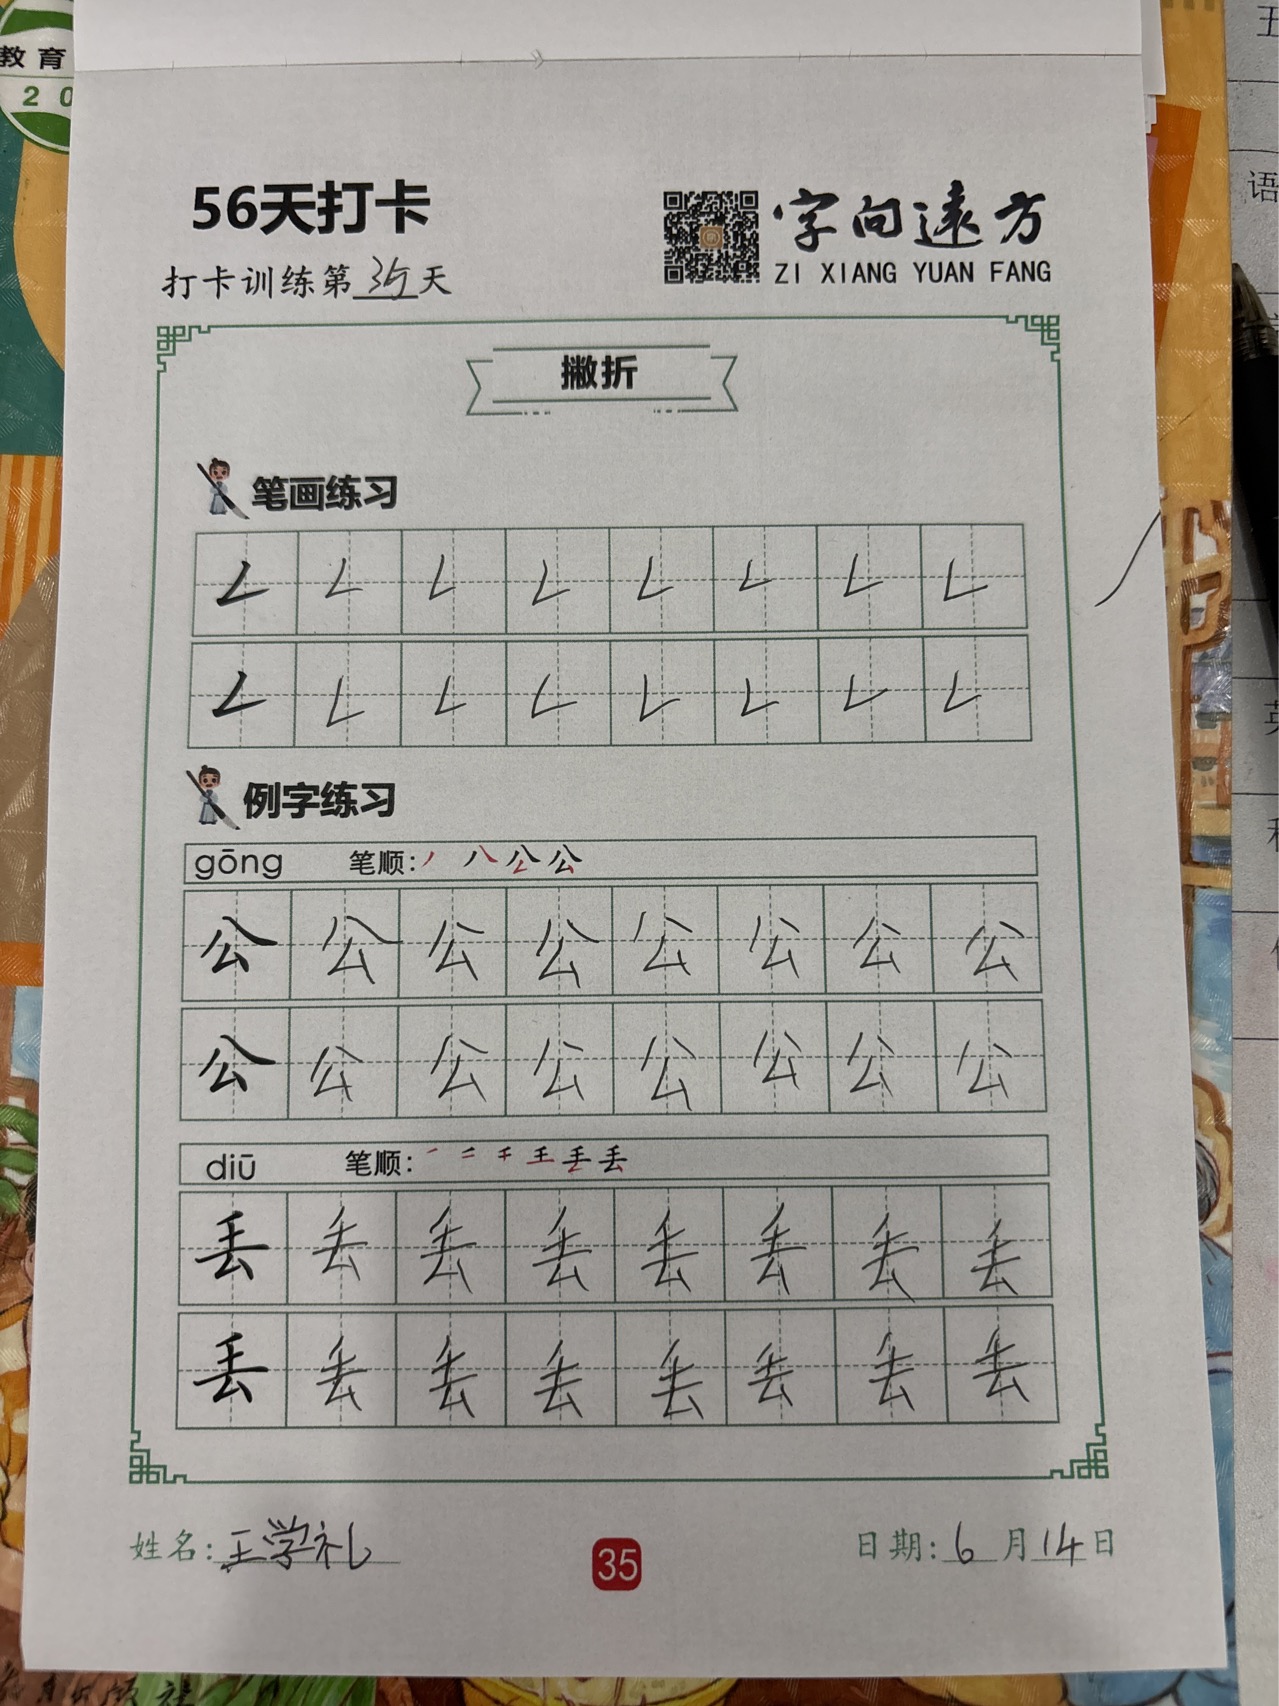 教育
20
56天打卡
字向遠方
ZI XIANG YUAN FANG
打卡训练第35天
撇折
笔画练习
例字练习
gōng 笔顺: 丿 八 公 公
公 公 公 公 公 公 公 公
公 公 公 公 公 公 公 公
diū 笔顺: 一 二 千 王 丢 丢
丢 丢 丢 丢 丢 丢 丢 丢
丢 丢 丢 丢 丢 丢 丢 丢
姓名:王学礼
35
日期:6月14日
语